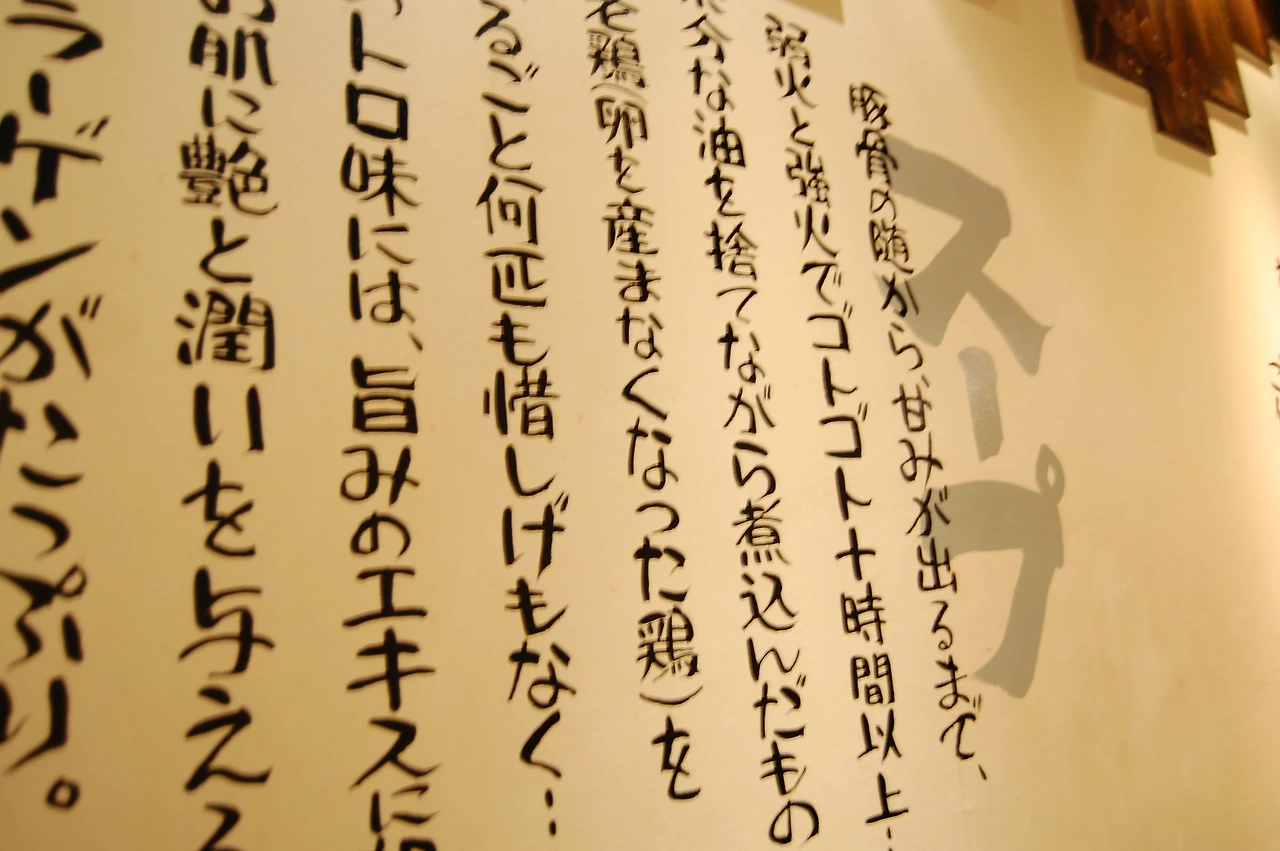 スープ
豚骨の随から甘みが出るまで、
弱火と強火でゴトゴト十時間以上…
分な油を捨てながら煮込んだもの
老鶏(卵を産まなくなった鶏)を
るごと何匹も惜しげもなく…
トロ味には、旨みのエキスに
肌に艶と潤いを与える
ラーゲンがたっぷり。